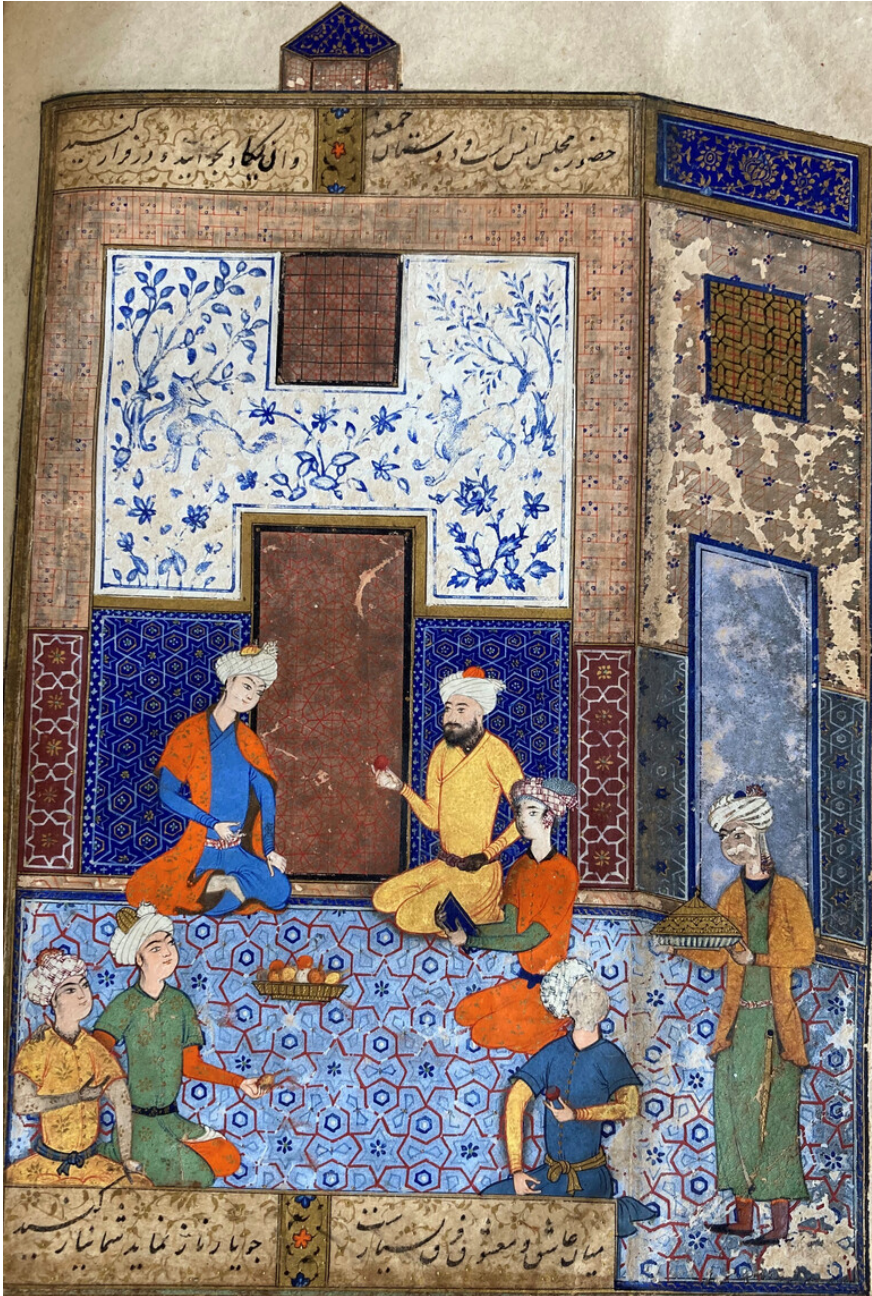 حضور مجلس انس است و دوستان جمعند وان یکاد بخوانید و در فراز کنید
میان عاشق و معشوق فرق بسیار است چو یار ناز نماید شما نیاز کنید